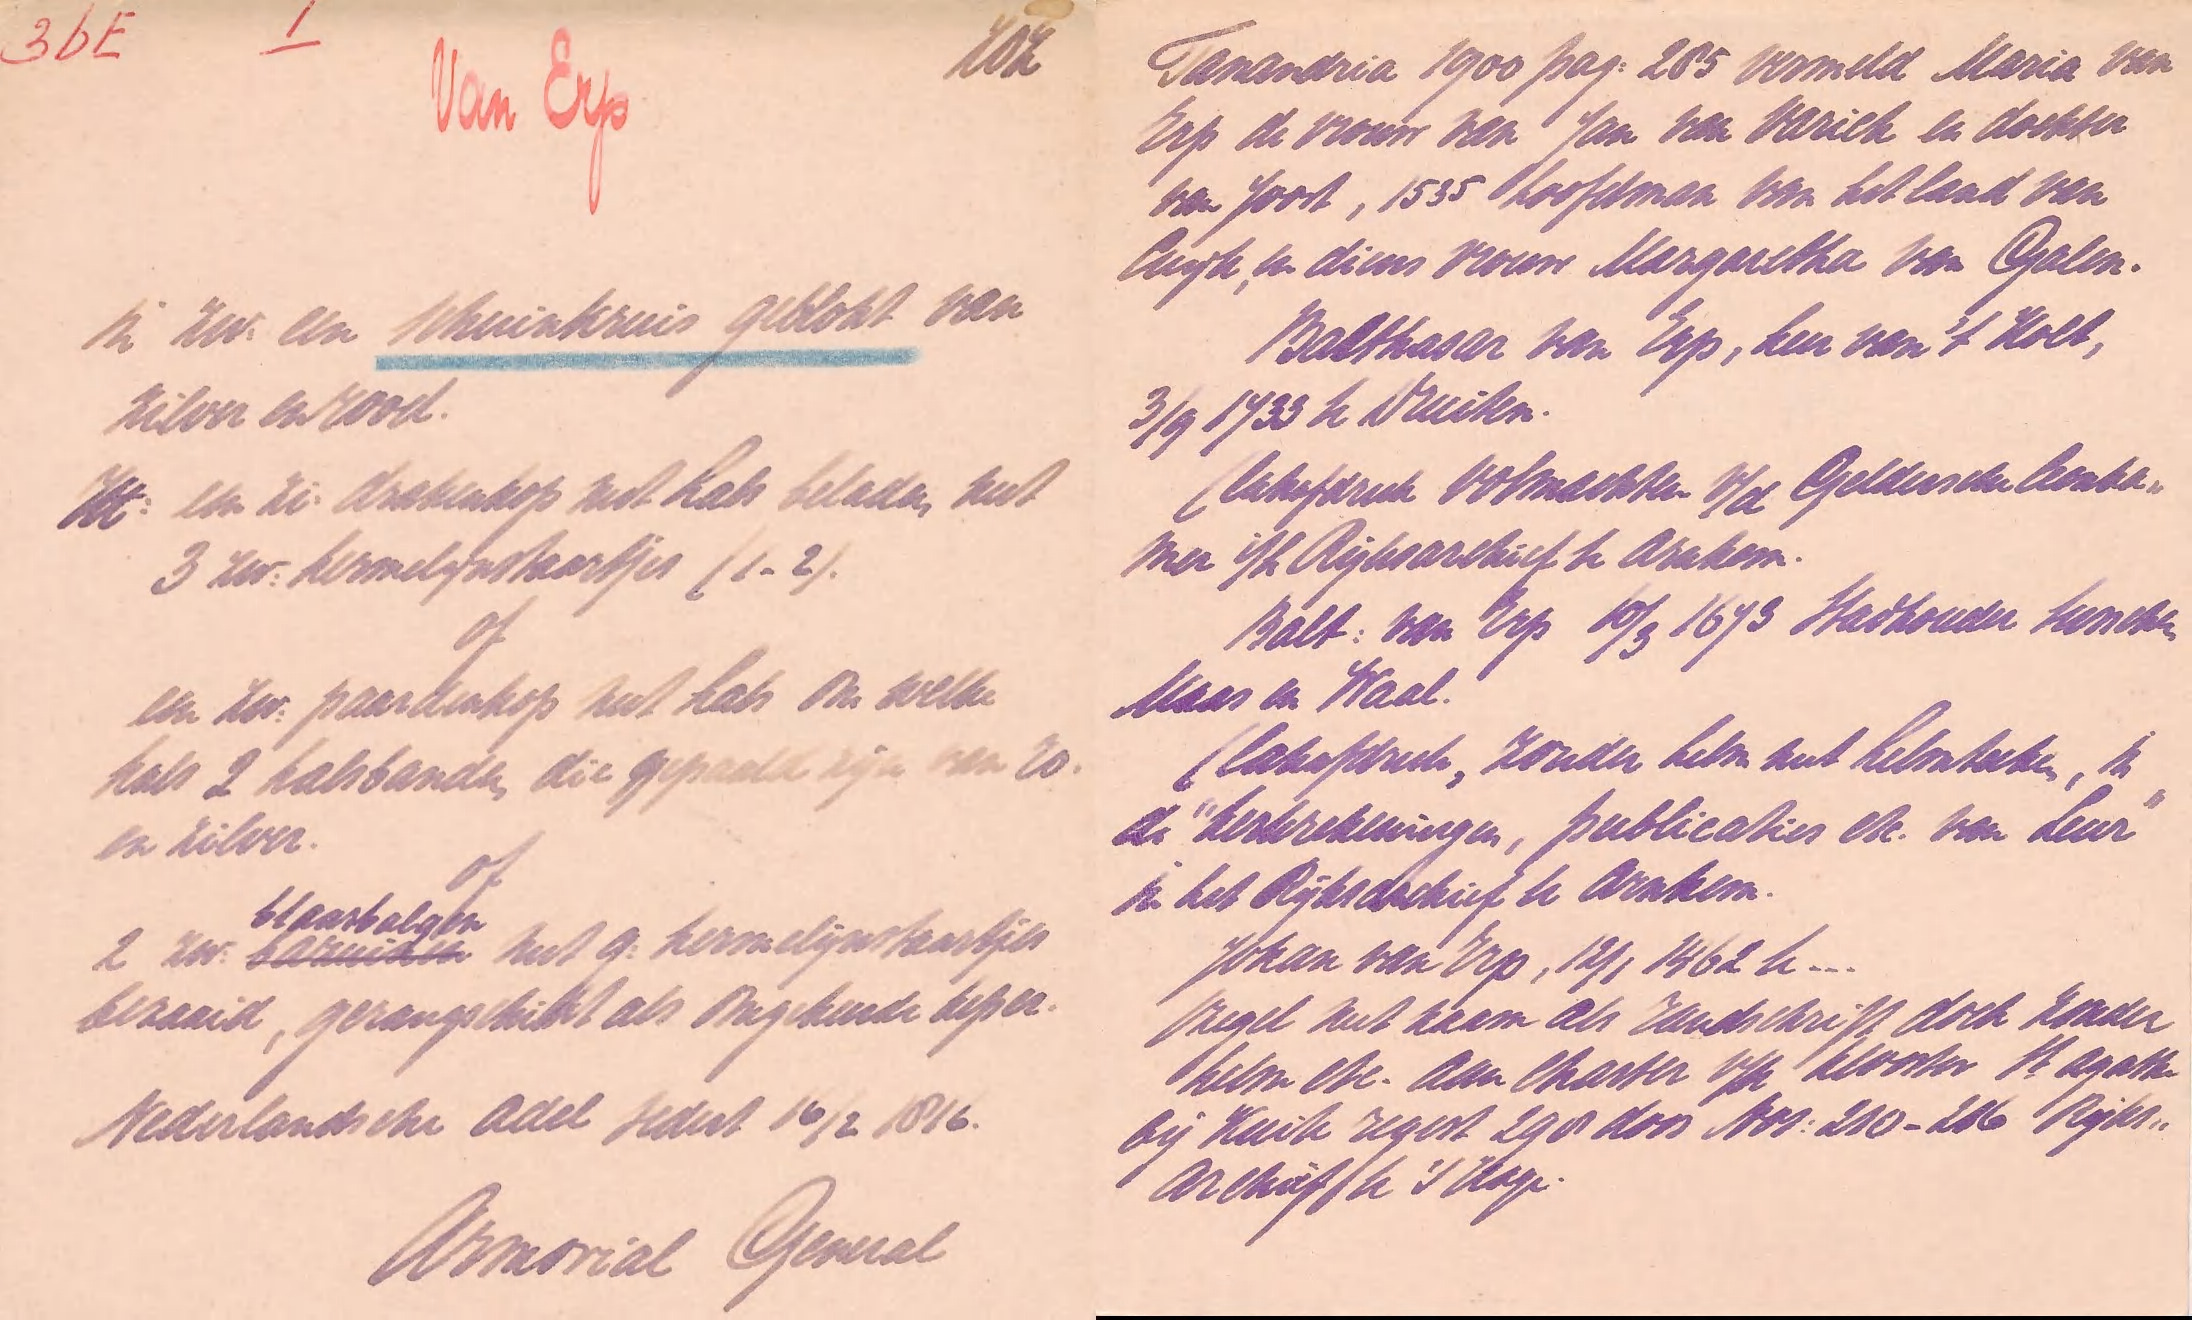 3bE 1
Van Erp
in zw: een schuinkruis geblokt van
zilver en rood.
Ht: een zi: drakenkop met hals beladen met
3 zw: hermelijnstaartjes (1-2).
of
een zw: paardenkop met hals om welke
hals 2 halsbanden die gepaald zijn van ro.
en zilver.
of
blaasbalgen
2 zw: met g: hermelijnstaartjes
bezaaid, gerangschikt als omgekeerde keper.
Nederlandsche Adel sedert 16/2 1816.
Armorial General
Taxandria 1900 pag: 285 vermeld Maria van
Erp de vrouw van Jan van Varick en dochter
van Joost, 1535 hoofdman van het land van
Cuyk, en diens vrouw Margaretha van Galen.
Balthasar van Erp, heer van 't Holt,
3/9 1733 te Druiten.
(lakafdruk volmachten v/d Geldersche leenka„
mer i/h Rijksarchief te Arnhem.
Balt: van Erp 10/3 1673 Stadhouder tusschen
Maas en Waal.
(lakafdruk, zonder helm met helmteeken, in
de "kerkrekeningen, publicaties etc. van Leur"
in het Rijksarchief te Arnhem.
Johan van Erp, 12/1 1462 te ...
Zegel met naam als randschrift doch zonder
helm etc. aan charter v/h klooster St Agatha
bij Kuik regest 298 doos Nos: 280-286 Rijks„
archief te 's Hage.